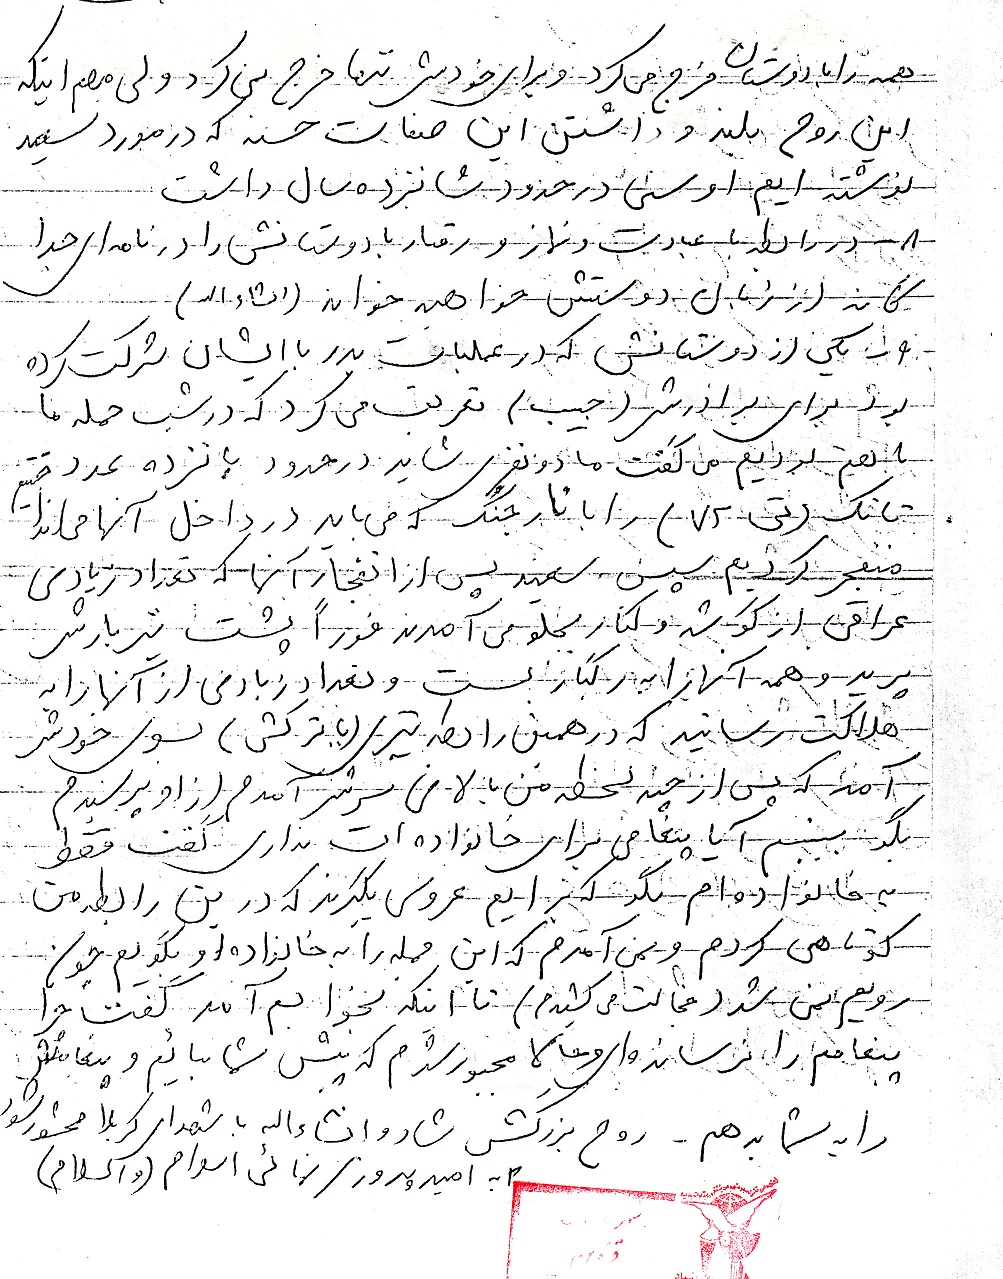 همه را با دوستان خرج می کرد و برای خودش تنها خرج نمی کرد ولی مهم اینکه
این روح بلند و داشتن این صفات حسنه که در مورد سعید
نوشته ایم او سنی در حدود شانزده سال داشت
۸- در رابطه با عبادت و نماز و رفتار با دوستانش را در نامه ای جدا
گانه از زبان دوستش خواهید خواند (انشاءاله)
۹- یکی از دوستانش که در عملیات بدر با ایشان شرکت کرده
بود برای برادرش (حبیب) تعریف می کرد که در شب حمله ما
با هم بودیم می گفت ما دو نفری شاید در حدود پانزده عدد
تانک (تی ۷۲) را با نارنجک که می باید در داخل آنها می انداختیم
منفجر کردیم سپس سعید پس از انفجار آنها که تعداد زیادی
عراقی از گوشه و کنار بجلو می آمدند فوراً پشت تیربارش
پرید و همه آنها را به رگبار بست و تعداد زیادی از آنها را به
هلاکت رسانید که در همین رابطه تیری (یا ترکشی) بسوی خودش
آمد که پس از چند لحظه من بالای سرش آمدم از او پرسیدم
بگو ببینم آیا پیغامی برای خانواده ات نداری گفت فقط
به خانواده ام بگو که برایم عروسی بگیرند که در این رابطه من
کوتاهی کردم و نمی آمدم که این جمله را به خانواده او بگویم چون
رویم نمی شد (خجالت می کشیدم) تا اینکه بخوابم آمد گفت چرا
پیغامم را نرسانده ای و حالا مجبور شدم که پیش شما بیائم و پیغامش
را به شما بدهم - روح بزرگش شاد و انشاءاله با شهدای کربلا محشور شود
به امید پیروزی نهائی اسلام (والسلام)